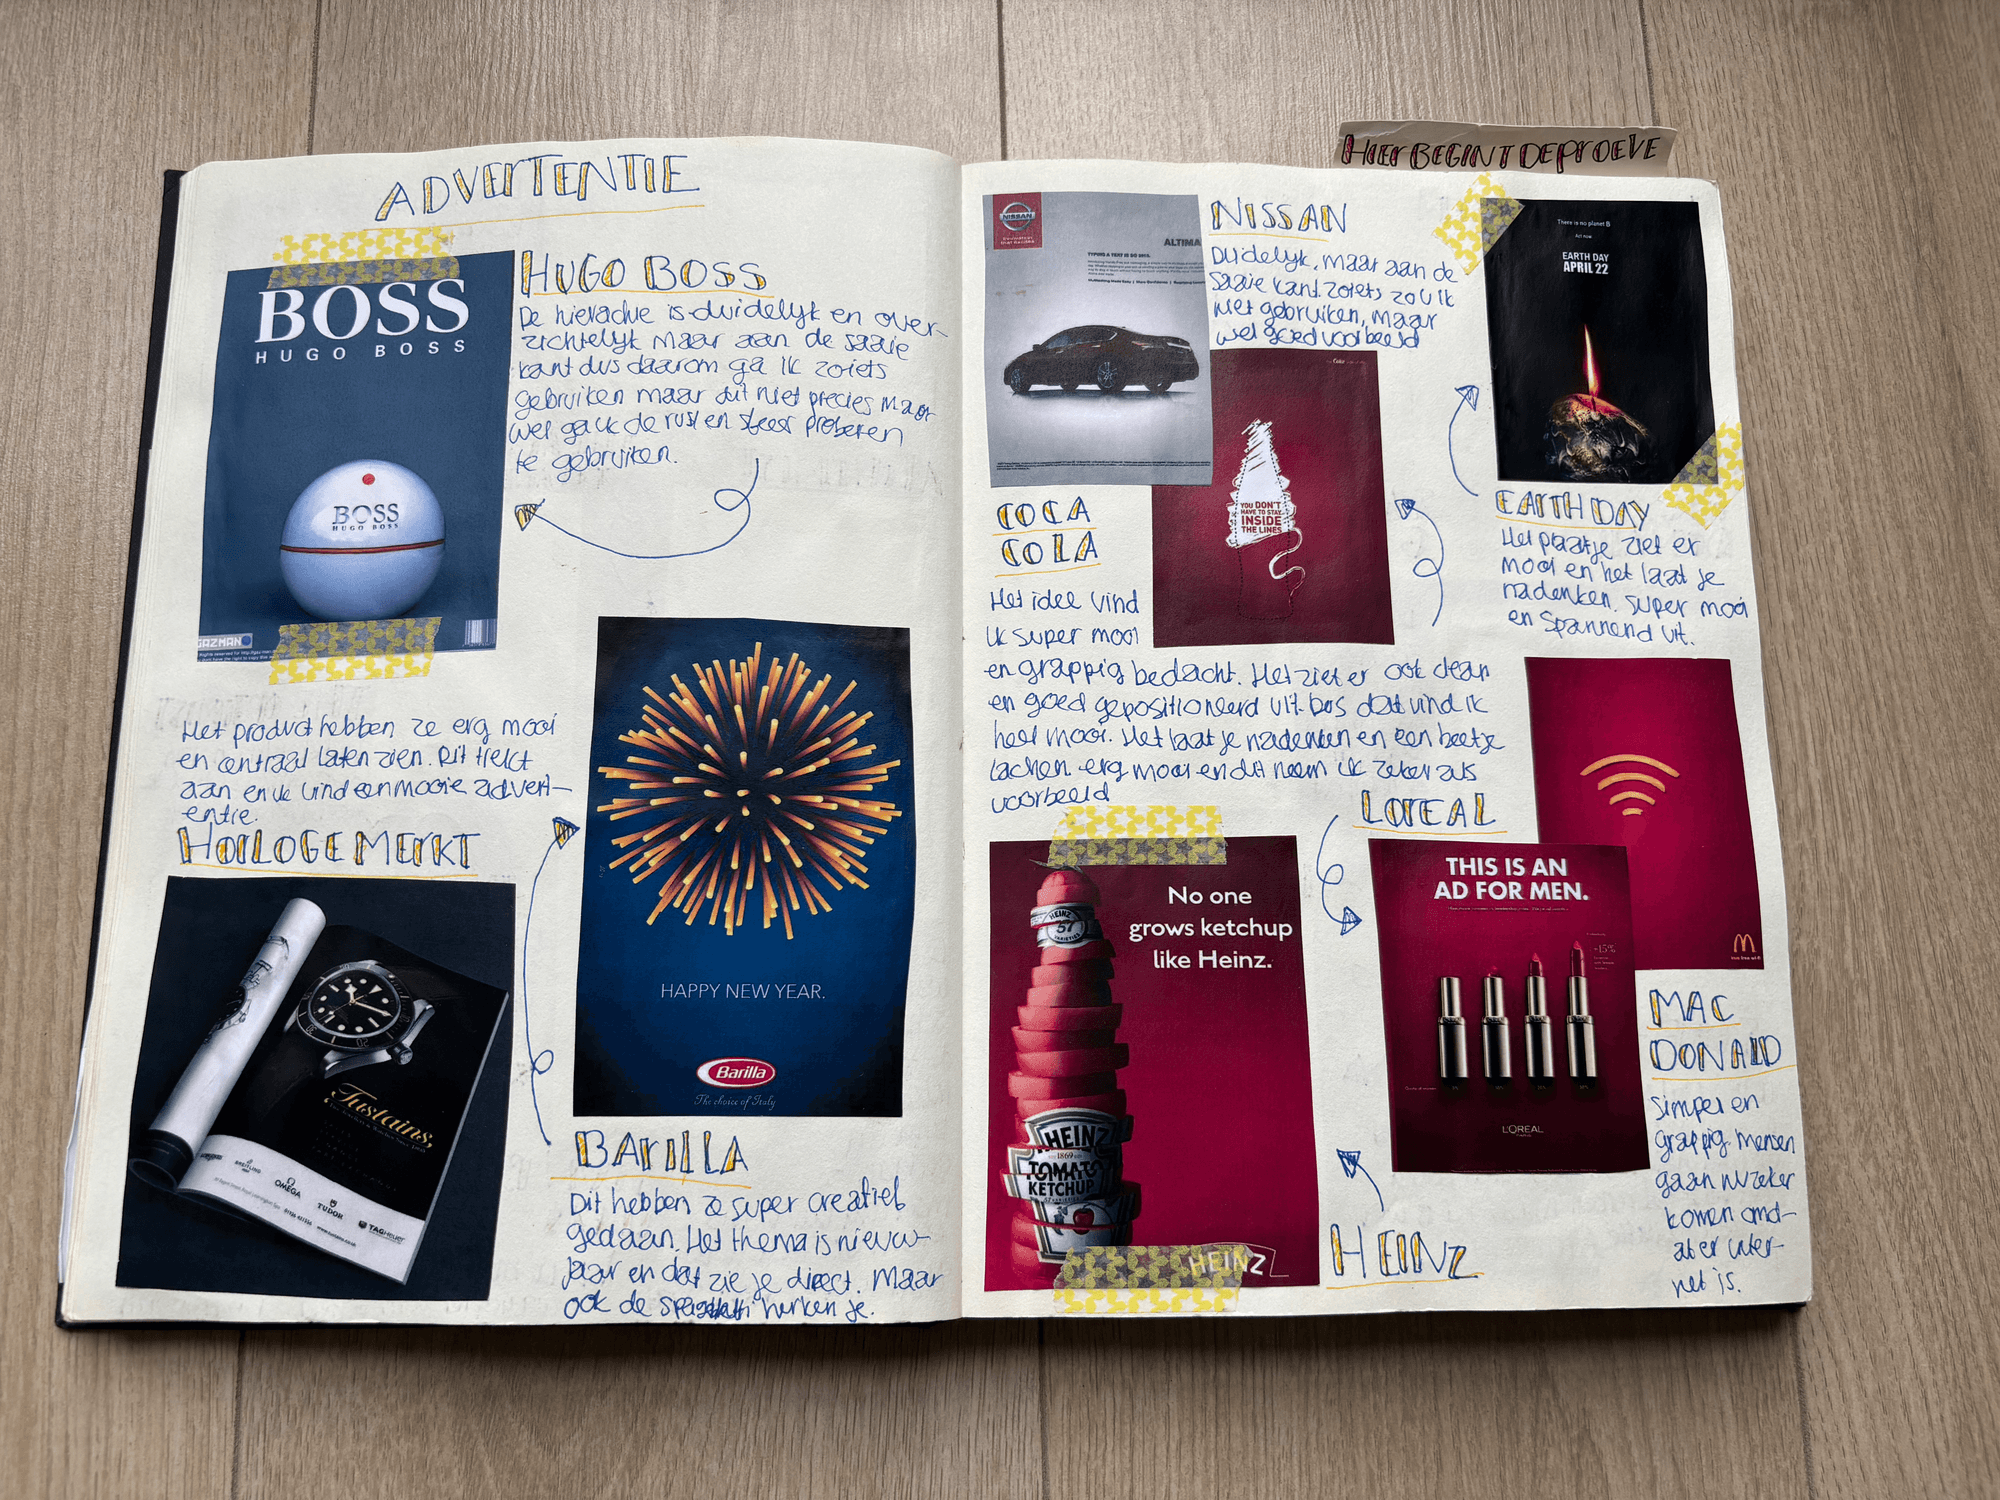 ADVERTENTIE
BOSS
HUGO BOSS
BOSS
HUGO BOSS
GAZMAN
HUGO BOSS
De hierachie is duidelijk en over-
zichtelijk maar aan de saaie
kant dus daarom ga ik zoiets
gebruiken maar dit niet precies maar
wel ga ik de rust en sfeer proberen
te gebruiken.
Het product hebben ze erg mooi
en centraal laten zien. Dit trekt
aan en ik vind een mooie advert-
entie.
HORLOGE MERKT
BREITLING
OMEGA
TUDOR
TAGHeuer
HAPPY NEW YEAR.
Barilla
The choice of Italy
BARILLA
Dit hebben ze super creatief
gedaan. Het thema is nieuw-
jaar en dat zie je direct. Maar
ook de spagetti herken je.
HIER BEGINT DE PROEVE
NISSAN
ALTIMA
NISSAN
Duidelijk, maar aan de
saaie kant. Zoiets zou ik
niet gebruiken, maar
wel goed voorbeeld
There is no planet B
Act now
EARTH DAY
APRIL 22
EARTH DAY
Het plaatje ziet er
mooi en het laat je
nadenken. Super mooi
en spannend uit.
YOU DON'T
HAVE TO STAY
INSIDE
THE LINES
COCA
COLA
Het idee vind
ik super mooi
en grappig bedacht. Het ziet er ook clean
en goed gepositioneerd uit. Dus dat vind ik
heel mooi. Het laat je nadenken en een beetje
lachen. erg mooi en dit neem ik zeker als
voorbeeld
LOREAL
THIS IS AN
AD FOR MEN.
L'ORÉAL
No one
grows ketchup
like Heinz.
HEINZ
57
VARIETIES
HEINZ
1869
TOMATO
KETCHUP
HEINZ
HEINZ
MAC
DONALD
Simpel en
grappig. Mensen
gaan nu zeker
komen omd-
at er inter-
net is.